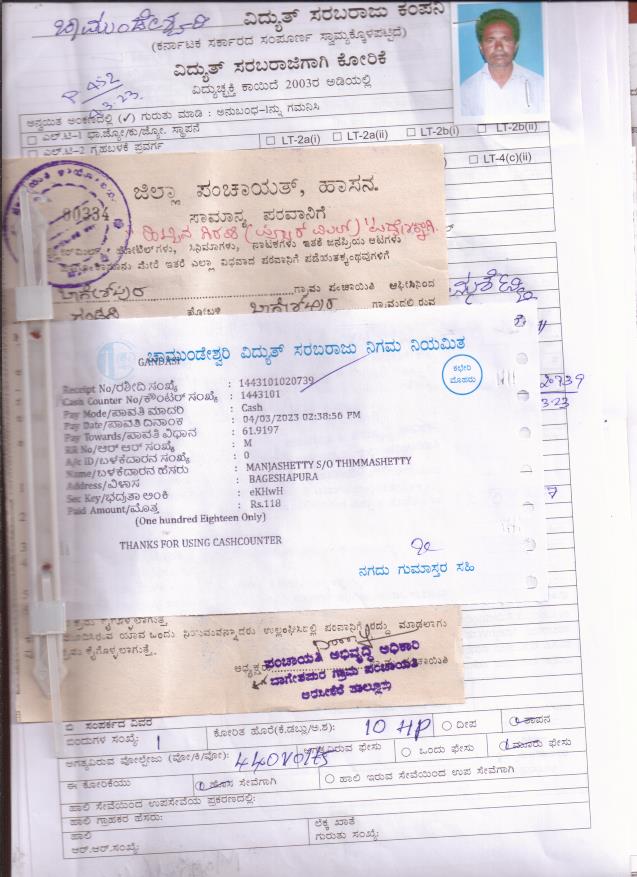 ಚಾಮುಂಡೇಶ್ವರಿ ವಿದ್ಯುತ್ ಸರಬರಾಜು ಕಂಪನಿ
(ಕರ್ನಾಟಕ ಸರ್ಕಾರದ ಸಂಪೂರ್ಣ ಸ್ವಾಮ್ಯಕ್ಕೊಳಪಟ್ಟಿದೆ)
ವಿದ್ಯುತ್ ಸರಬರಾಜಿಗಾಗಿ ಕೋರಿಕೆ
ವಿದ್ಯುಚ್ಛಕ್ತಿ ಕಾಯಿದೆ 2003ರ ಅಡಿಯಲ್ಲಿ
ಅನ್ವಯಿತ ಅಂಕಣದಲ್ಲಿ (✓) ಗುರುತು ಮಾಡಿ : ಅನುಬಂಧ-1ನ್ನು ಗಮನಿಸಿ
ಎಲ್.ಟಿ-1 ಭಾ.ಜ್ಯೋ/ಕು/ಜ್ಯೋ. ಸ್ಥಾಪನ
ಎಲ್.ಟಿ-2 ಗೃಹಬಳಕೆ ಪ್ರವರ್ಗ LT-2a(i) LT-2a(ii) LT-2b(i) LT-2b(ii)
LT-4(c)(ii)
ಜಿಲ್ಲಾ ಪಂಚಾಯತ್, ಹಾಸನ.
80334 ಸಾಮಾನ್ಯ ಪರವಾನಿಗೆ
ಹೋಟೆಲ್‌ಗಳು, ಸಿನಿಮಾಗಳು, ನಾಟಕಗಳು ಇತರೆ ಜನಪ್ರಿಯ ಆಟಗಳು
ಮೇರೆ ಇತರೆ ಎಲ್ಲಾ ವಿಧವಾದ ಪರವಾನಿಗೆ ಪಡೆಯತಕ್ಕಂಥವುಗಳಿಗೆ
ಬಾಗೇಶಪುರ ಗ್ರಾಮ ಪಂಚಾಯಿತಿ ಆಫೀಸಿನಿಂದ
ಗಂಡಸಿ ಹೋಬಳಿ ಬಾಗೇಶಪುರ ಗ್ರಾಮದಲ್ಲಿ ರುವ
ಚಾಮುಂಡೇಶ್ವರಿ ವಿದ್ಯುತ್ ಸರಬರಾಜು ನಿಗಮ ನಿಯಮಿತ
GANDASI
ಕಛೇರಿ
ಮೊಹರು
Receipt No/ರಶೀದಿ ಸಂಖ್ಯೆ : 1443101020739
Cash Counter No/ಕೌಂಟರ್ ಸಂಖ್ಯೆ : 1443101
Pay Mode/ಪಾವತಿ ಮಾದರಿ : Cash
Pay Date/ಪಾವತಿ ದಿನಾಂಕ : 04/03/2023 02:38:56 PM
Pay Towards/ಪಾವತಿ ವಿಧಾನ : 61.9197
RR No/ಆರ್ ಆರ್ ಸಂಖ್ಯೆ : M
A/c ID/ಬಳಕೆದಾರನ ಸಂಖ್ಯೆ : 0
Name/ಬಳಕೆದಾರನ ಹೆಸರು : MANJASHETTY S/O THIMMASHETTY
Address/ವಿಳಾಸ : BAGESHAPURA
Sec Key/ಭದ್ರತಾ ಅಂಕಿ : eKHwH
Paid Amount/ಮೊತ್ತ : Rs.118
(One hundred Eighteen Only)
THANKS FOR USING CASHCOUNTER
ನಗದು ಗುಮಾಸ್ತರ ಸಹಿ
ಕ್ರಮ ಕೈಗೊಳ್ಳಲಾಗುತ್ತೆ
ಯಾವ ಒಂದು ನಿಯಮವನ್ನಾದರು ಉಲ್ಲಂಘಿಸಿದಲ್ಲಿ ಮಾಡಲಾಗು
ಕೈಗೊಳ್ಳಲಾಗುತ್ತೆ.
ಪಂಚಾಯತಿ ಅಭಿವೃದ್ಧಿ ಅಧಿಕಾರಿ
ಬಾಗೇಶಪುರ ಗ್ರಾಮ ಪಂಚಾಯತಿ
ಅರಸೀಕೆರೆ ತಾಲ್ಲೂಕು
ಸಂಪರ್ಕದ ವಿವರ
ಬಿಂದುಗಳ ಸಂಖ್ಯೆ: 1 ಕೋರಿತ ಹೊರೆ(ಕೆ.ಡಬ್ಲು/ಅ.ಶ): 10 HP ದೀಪ ತಾಪನ
ಅಗತ್ಯವಿರುವ ವೋಲ್ಟೇಜು (ವೋ/ಕಿ/ವೋ): 440 Volts ಅಗತ್ಯವಿರುವ ಫೇಸು ಒಂದು ಫೇಸು ಮೂರು ಫೇಸು
ಈ ಕೋರಿಕೆಯು ಹೊಸ ಸೇವೆಗಾಗಿ ಹಾಲಿ ಇರುವ ಸೇವೆಯಿಂದ ಉಪ ಸೇವೆಗಾಗಿ
ಹಾಲಿ ಸೇವೆಯಿಂದ ಉಪಸೇವೆಯ ಪ್ರಕರಣದಲ್ಲಿ:
ಹಾಲಿ ಗ್ರಾಹಕರ ಹೆಸರು:
ಹಾಲಿ ಲೆಕ್ಕ ಖಾತೆ
ಆರ್.ಆರ್.ಸಂಖ್ಯೆ: ಗುರುತು ಸಂಖ್ಯೆ: